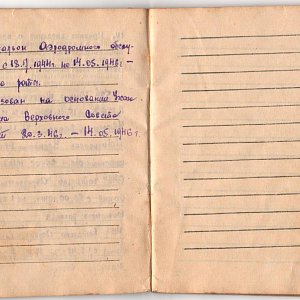 тарьон Аэродромного обслу
с 18.IV.1944г. по 14.05.1946 -
роты.
зован на основании Указ
Верховного Совета
20.3.46г. - 14.05.1946г.